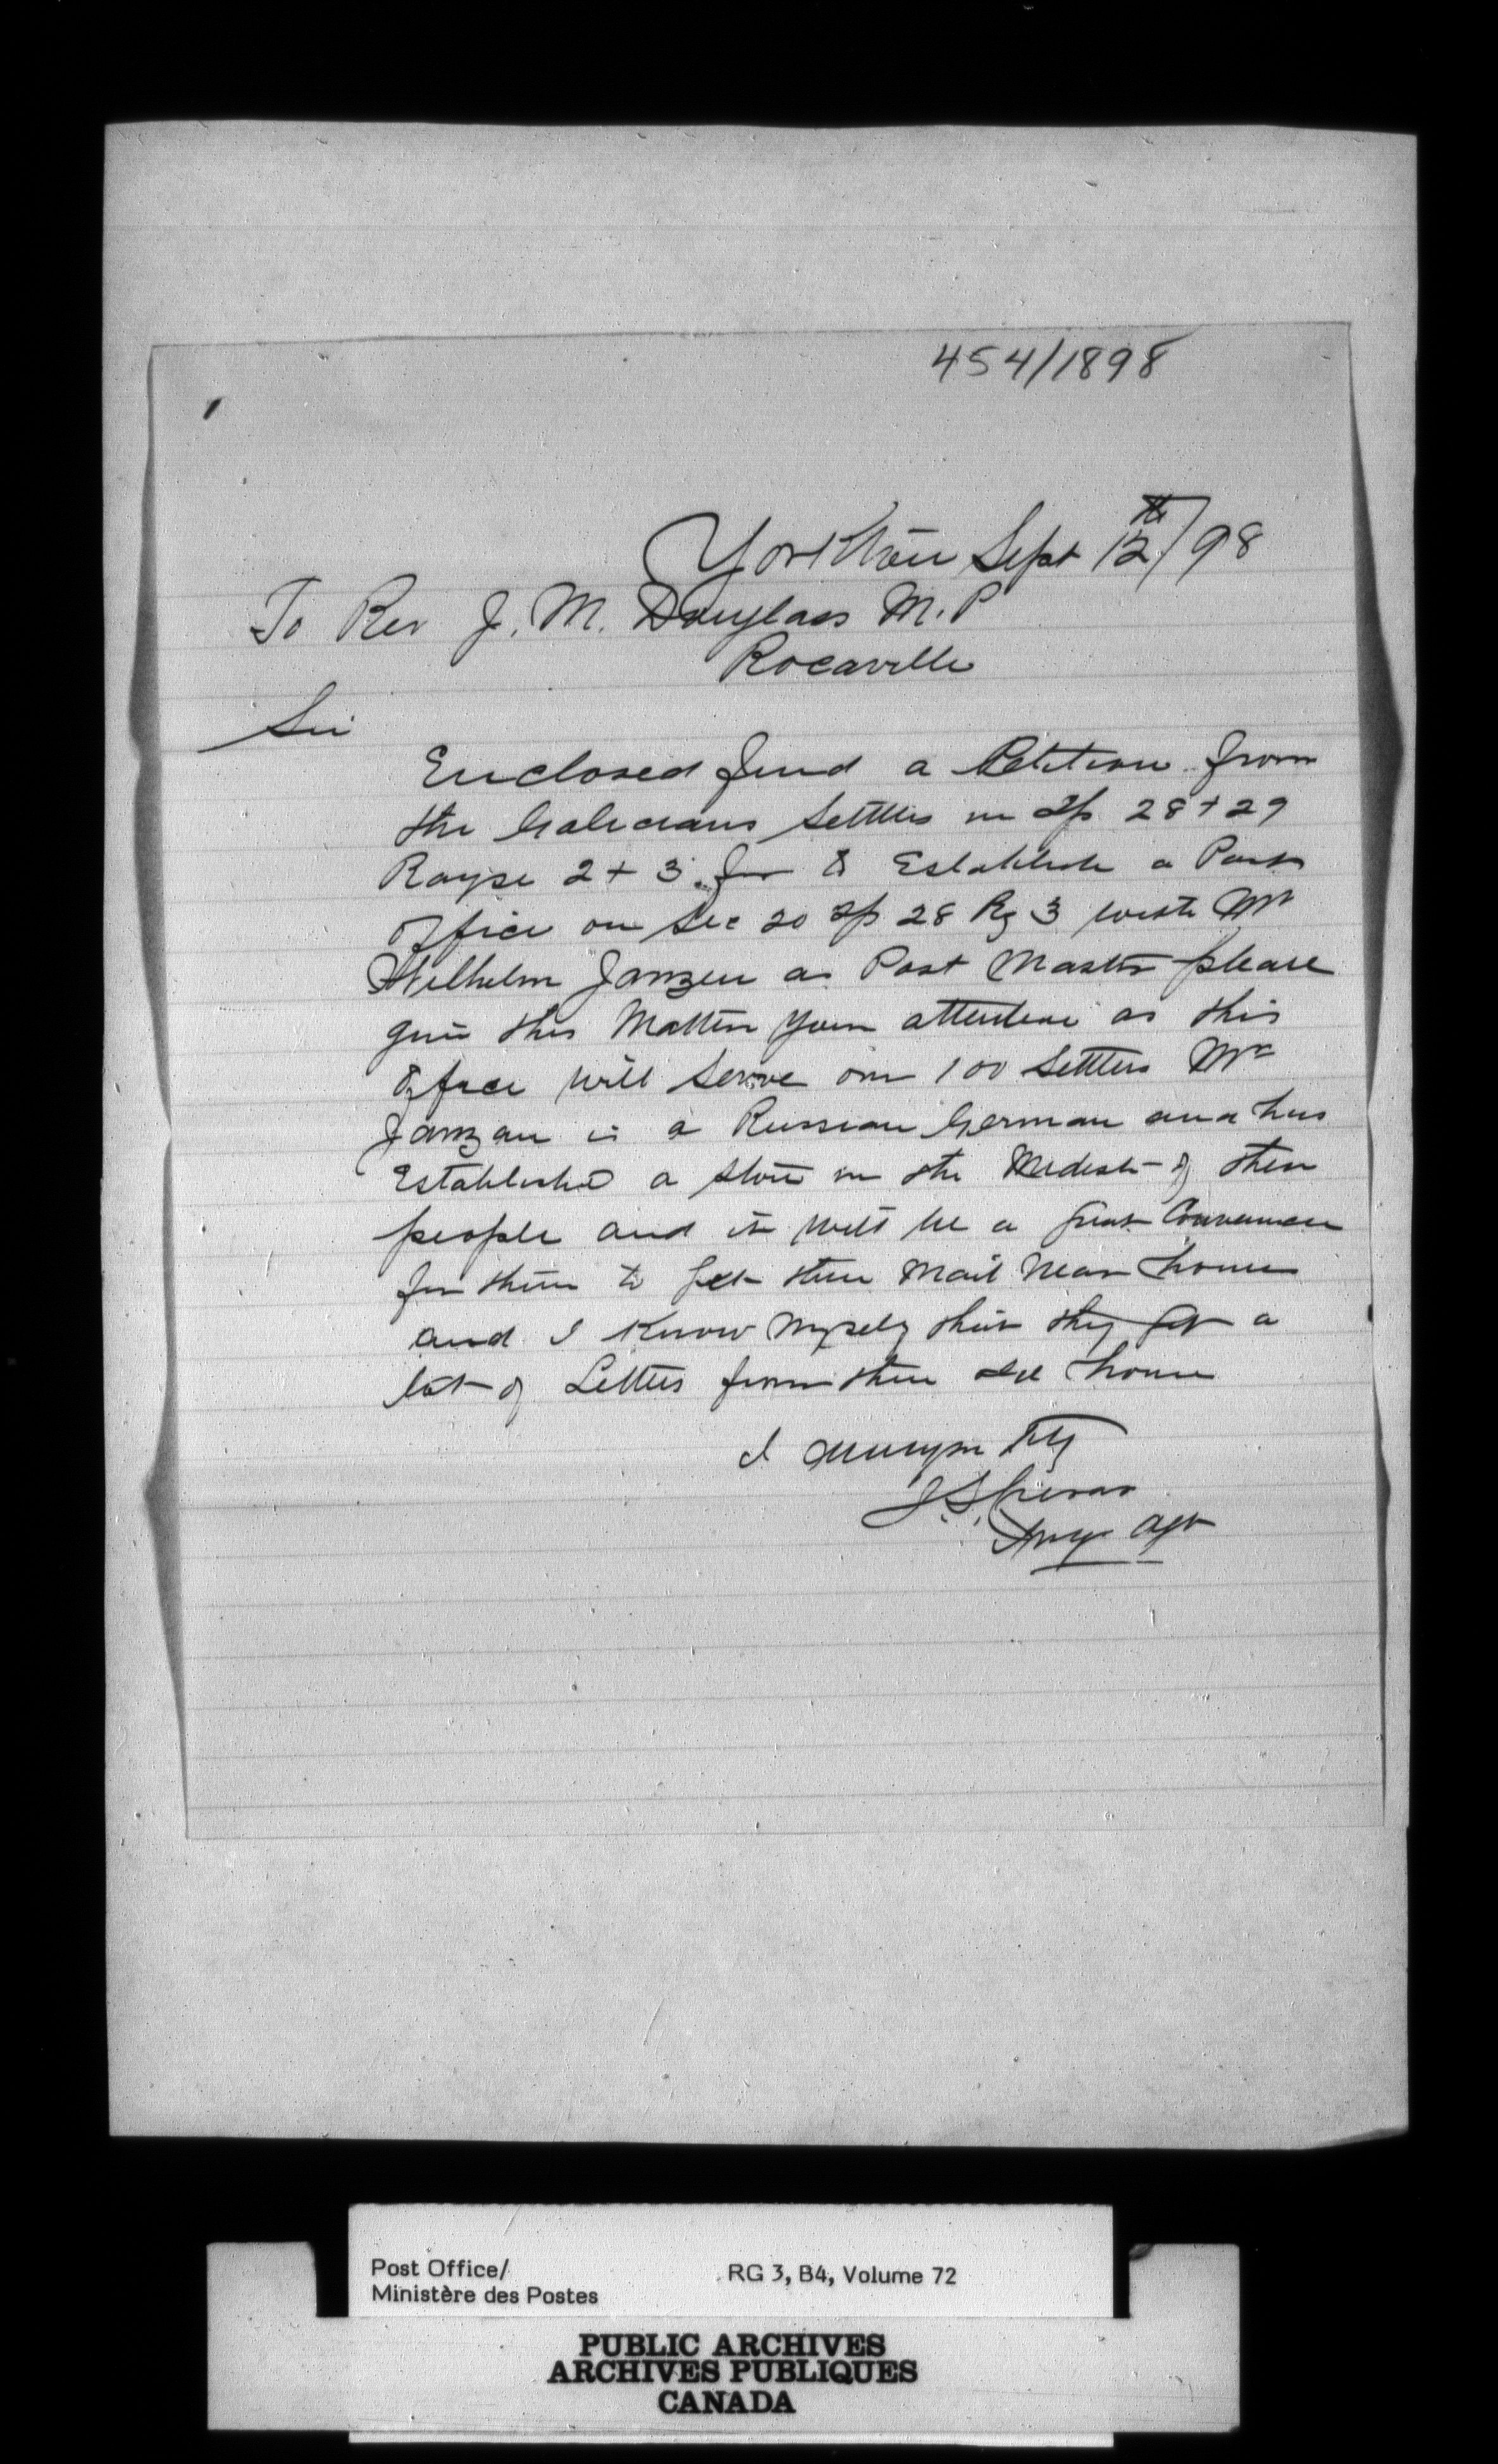 454/1898
Yorkton Sept 12th/98
To Rev J. M. Douglass M.P
Rocaville
Sir
Enclosed find a Petition from
the Galicians Settlers in Tp 28 + 29
Range 2 + 3 for to Establish a Post
office on Sec 20 Tp 28 Rg 3 with Mr
Wilhelm Janzen as Post Master please
give this Matter your attention as this
office will serve over 100 Settlers Mr
Janzan is a Russian German and has
Established a store in the Midest of these
people and it will be a great Convenience
for them to get their Mail Near home
and I Know Myself that they get a
lot of Letters from their old home
I
J.S. Crerar
Agt
Post Office/ RG 3, B4, Volume 72
Ministère des Postes
PUBLIC ARCHIVES
ARCHIVES PUBLIQUES
CANADA